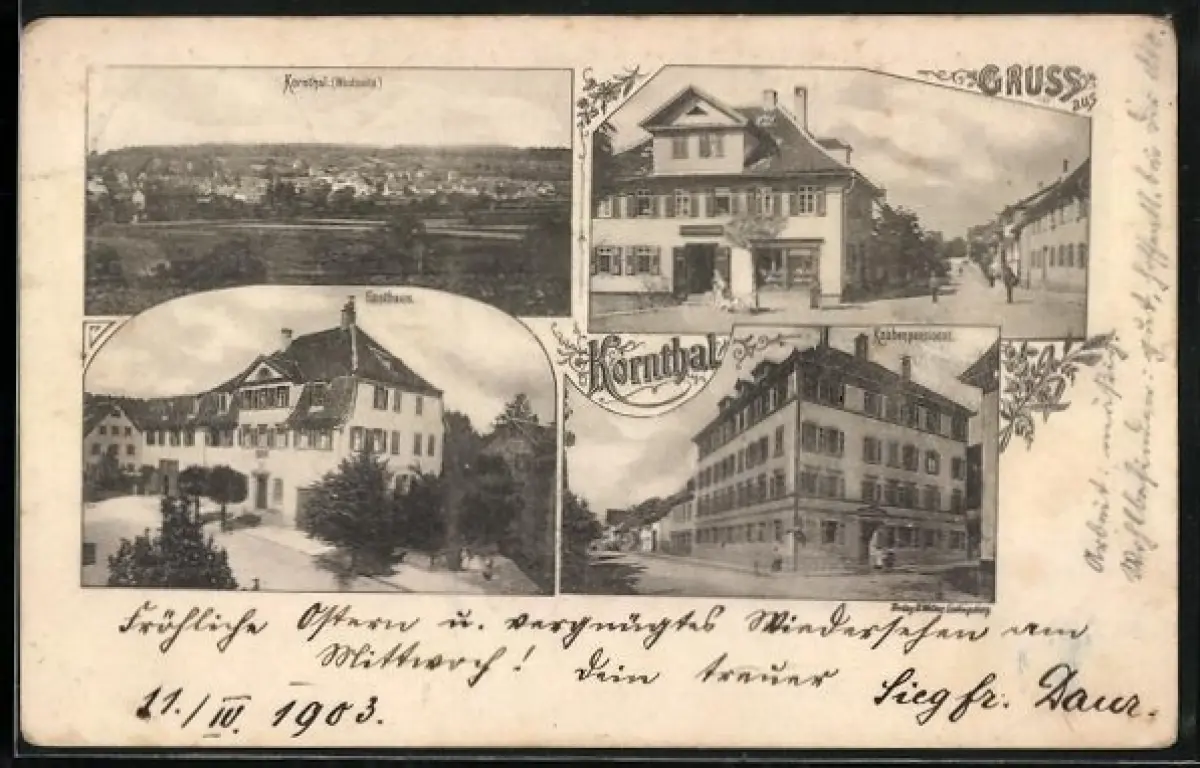 Kornthal (Westseite)
GRUSS
aus
Gasthaus.
Kornthal
Knabenpensionat.
Verlag
Fröhliche Ostern u. vergnügtes Wiedersehen am
Mittwoch! Dein treuer Siegfr. Daur.
11./IV. 1903.
gut, hoffentl. bei Dir dto.